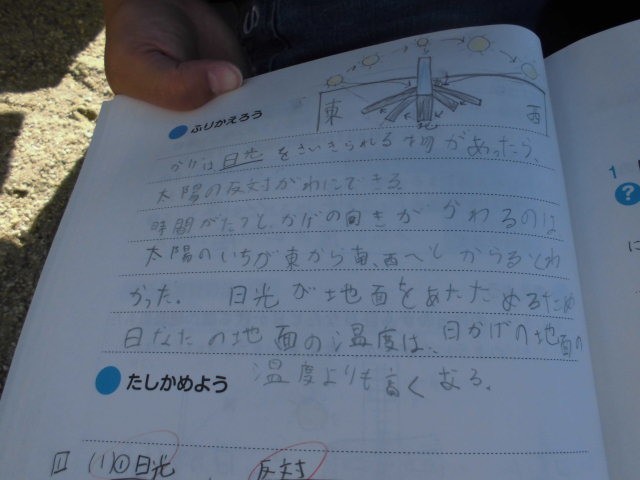 東
西
ふりかえろう
かげは日光をさいぎられる物があったら、
太陽の反対がわにできる
時間がたつと、かげの向きがかわるのは
太陽のいちが東から南、西へと かうるとわ
かった. 日光が地面をあたためるため
日なたの地面の温度は、日かげの地面の
温度よりも高くなる。
たしかめよう
1 (1)① 日光
反対
1
?
に